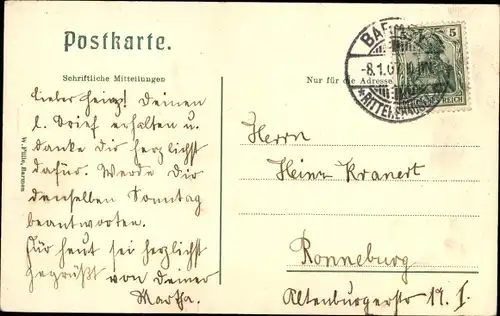 Postkarte.
Schriftliche Mitteilungen
Nur für die Adresse
Lieber Heinz! Deinen
l. Brief erhalten u.
danke dir herzlichst
dafür. Werde Dir
denselben Sonntag
beantworten.
Für heut sei herzlichst
gegrüßt von Deiner
Martha.
BARMEN
-8.1.07
*RITTERSHAUSEN
5
REICH
Herrn
Heinz Kranert
Ronneburg
Altenburgerstr 19. I.
W. Fülle, Barmen